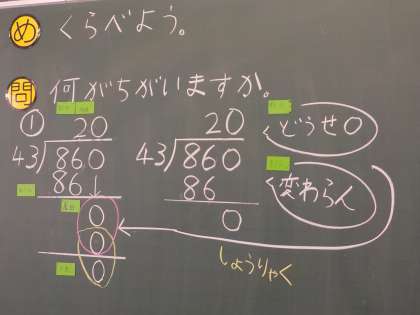 め くらべよう。
問 何がちがいますか。
① 20
43)860
86↓
0
0
0
20
43)860
86
0
どうせ0
変わらん
しょうりゃく